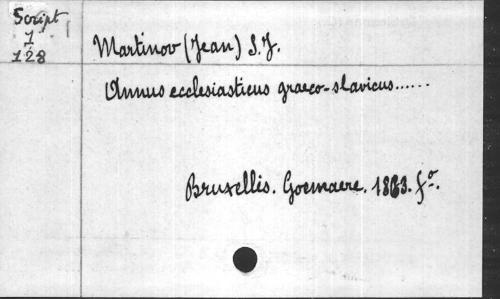 Script
1
128
Martinov (Jean) S.J.
Annus ecclesiasticus graeco-slavicus......
Bruxellis. Goemaere. 1863. fo.